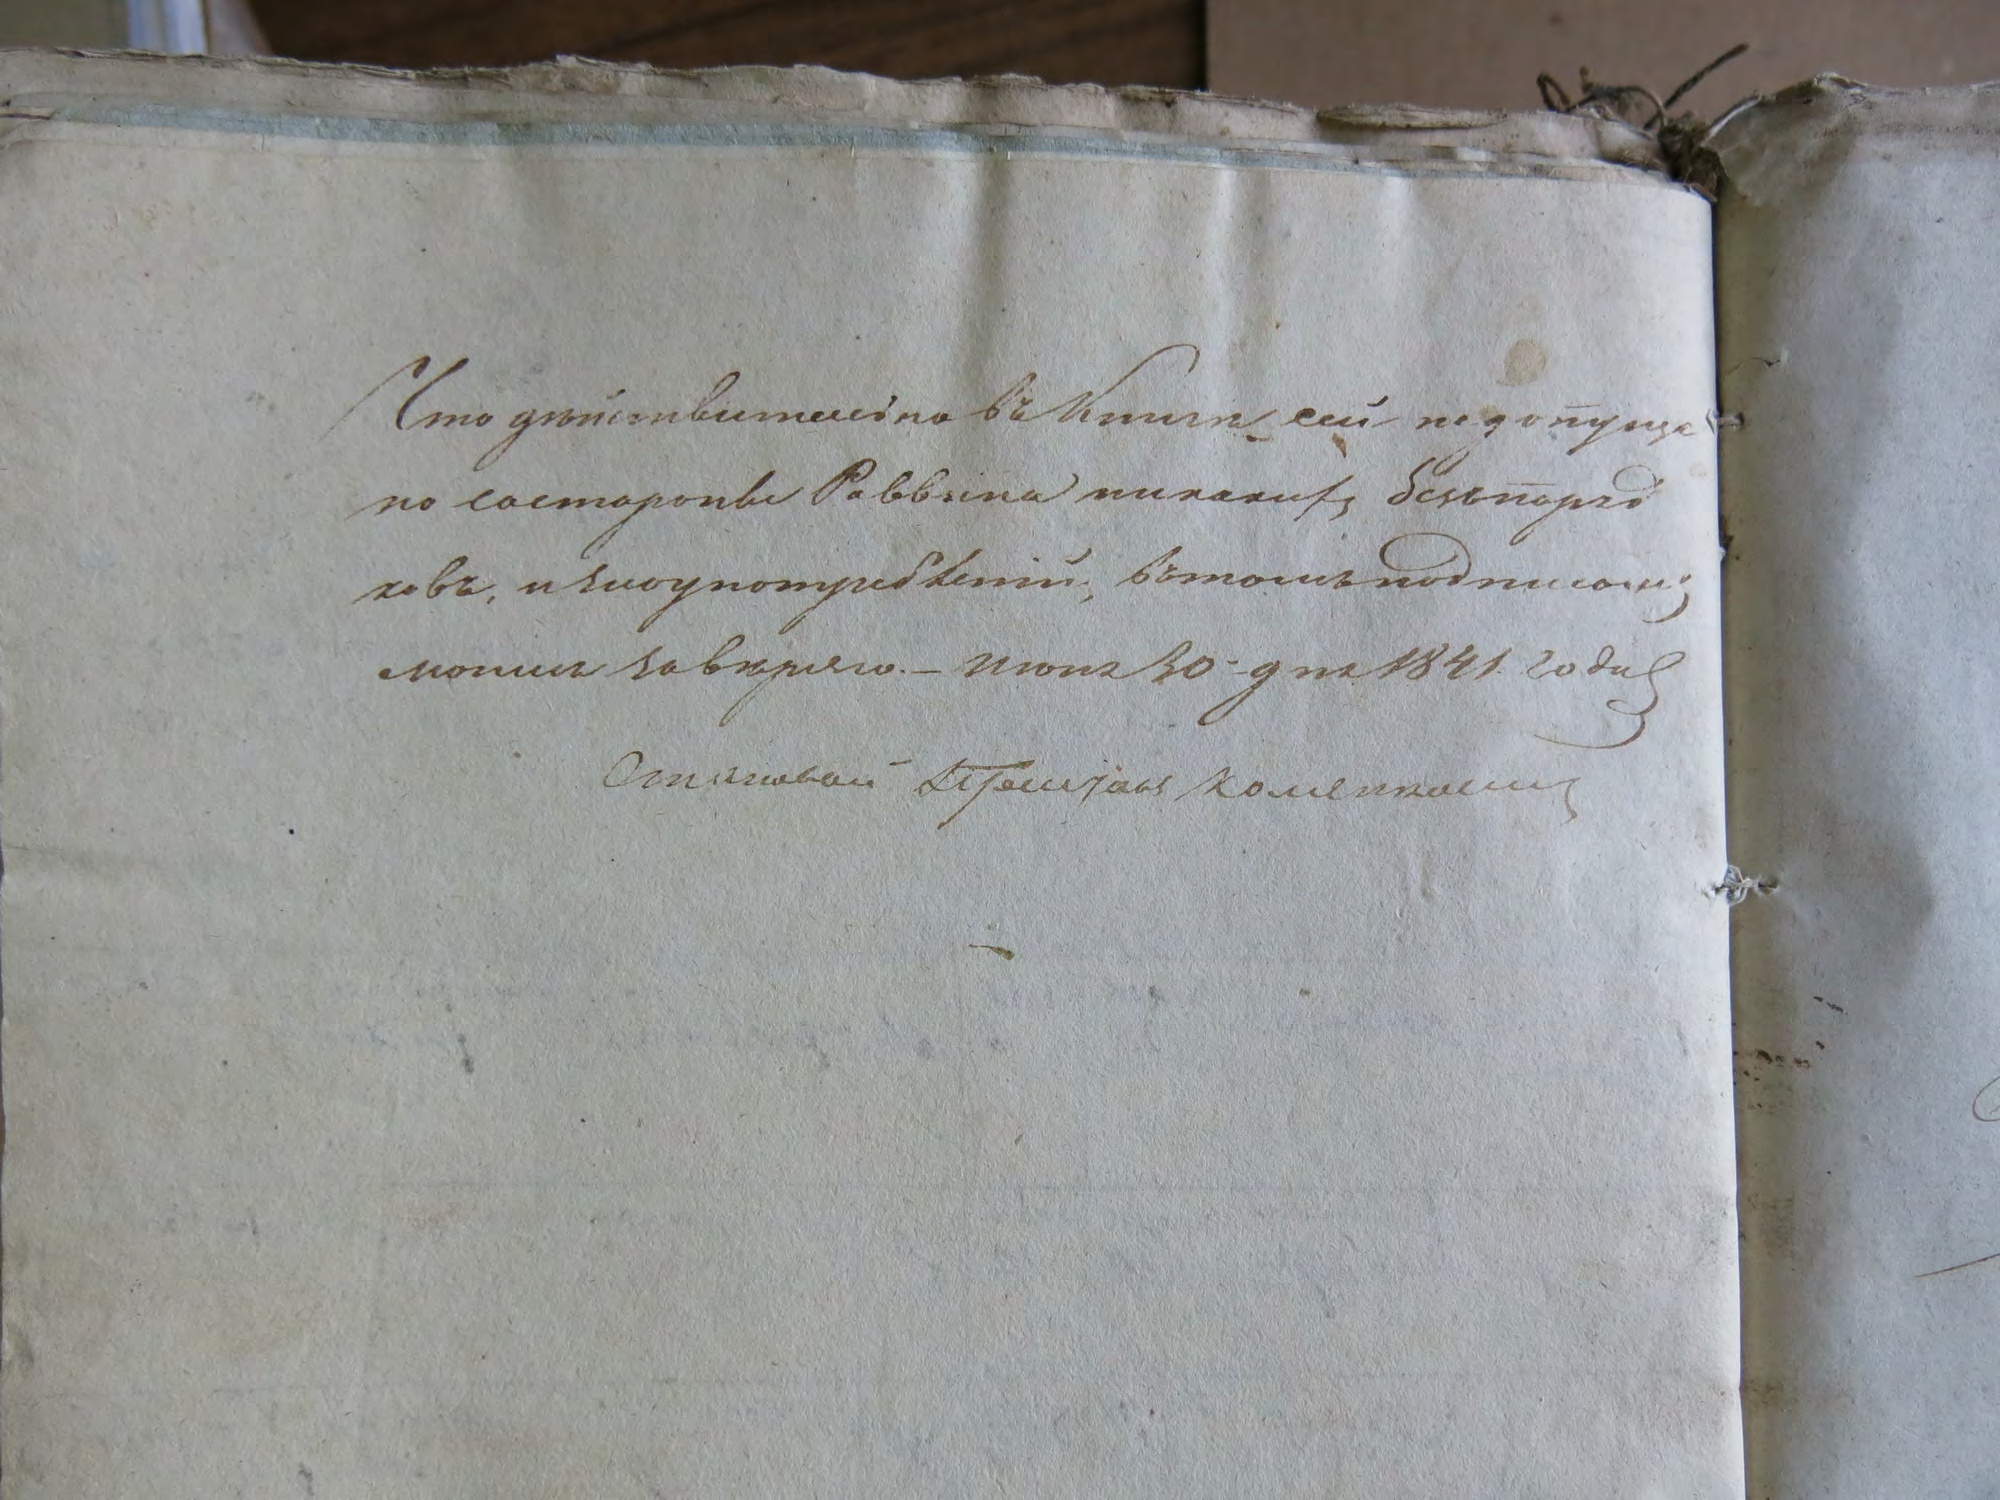 Что действительно въ Книге сей недопуще
но состороны Раввина никакихъ безъпоряд
ковъ, и злоупотреблений, втомъ подписомъ
моимъ заверяю. – Июня 30 дня 1841 года
Становой Приставъ